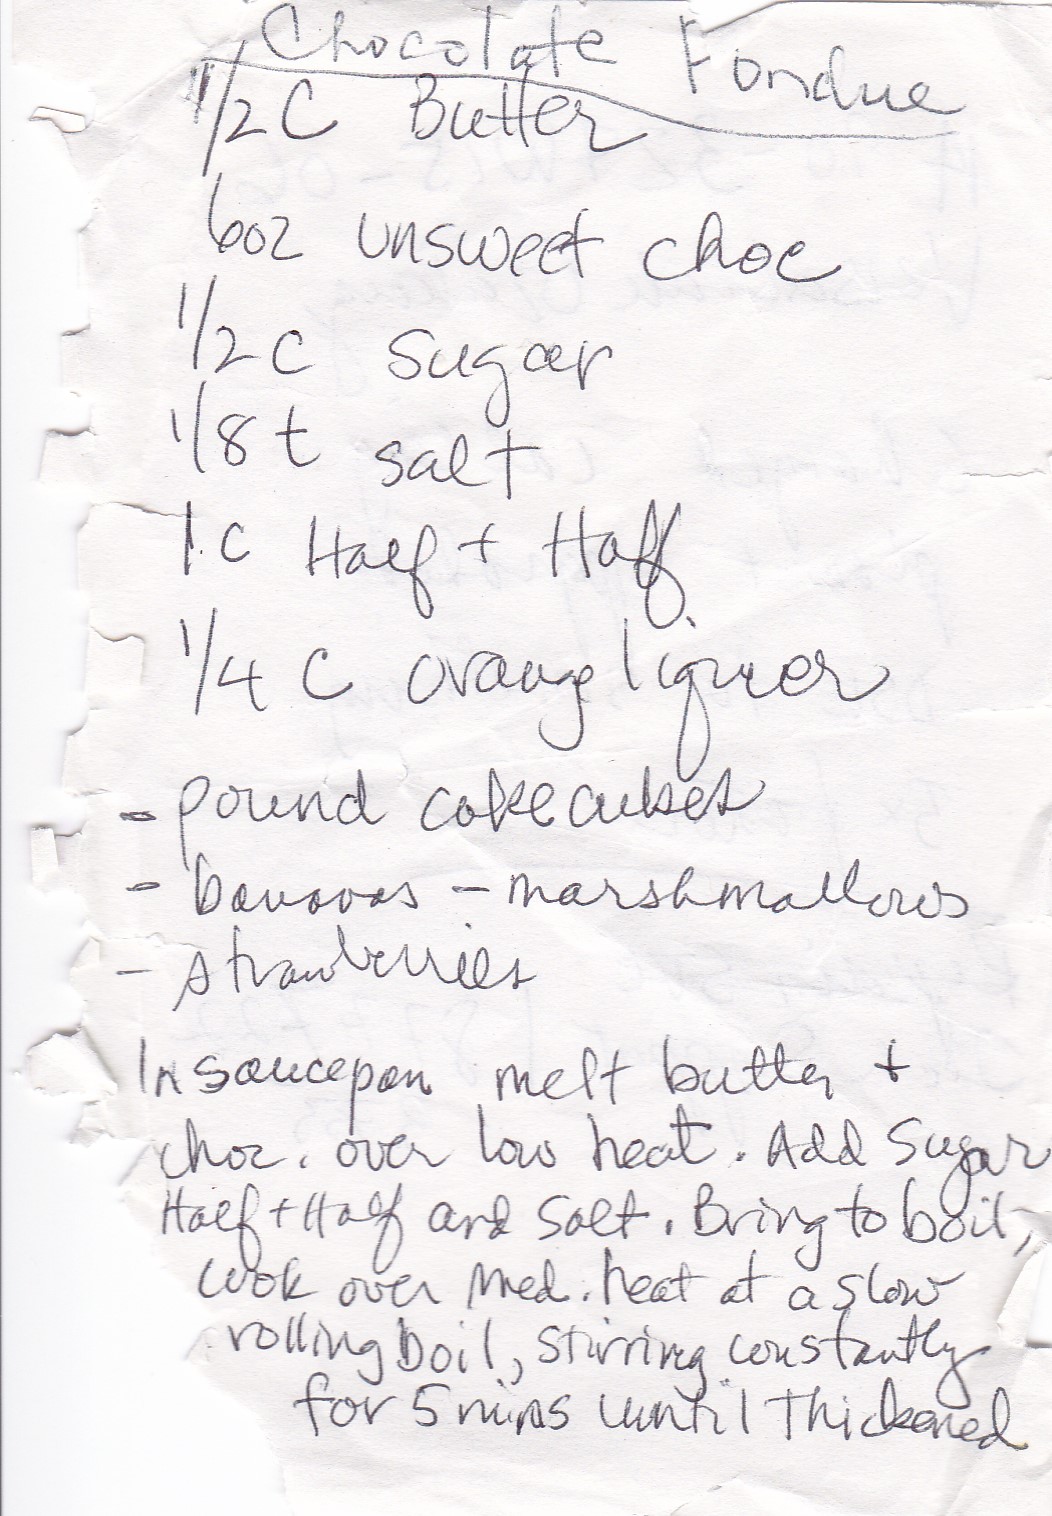 Chocolate Fondue
1/2 C Butter
6oz unsweet choc
1/2 C sugar
1/8 t salt
1 C Half + Half
1/4 C orange liquer
- pound cake cubes
- bananas - marshmallows
- strawberries
In saucepan melt butter +
choc. over low heat. Add Sugar
Half + Half and Salt. Bring to boil,
cook over med. heat at a slow
rolling boil, stirring constantly
for 5 mins until thickened